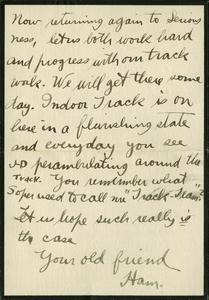 Now returning again to serious
ness, let us both work hard
and progress with our track
work. We will get there some
day. Indoor Track is on
here in a flurishing state
and everyday you see
perambulating around the
track. You remember what
Soper used to call me "Track-Team"?
Let us hope such really is
the case
Your old friend
Ham.